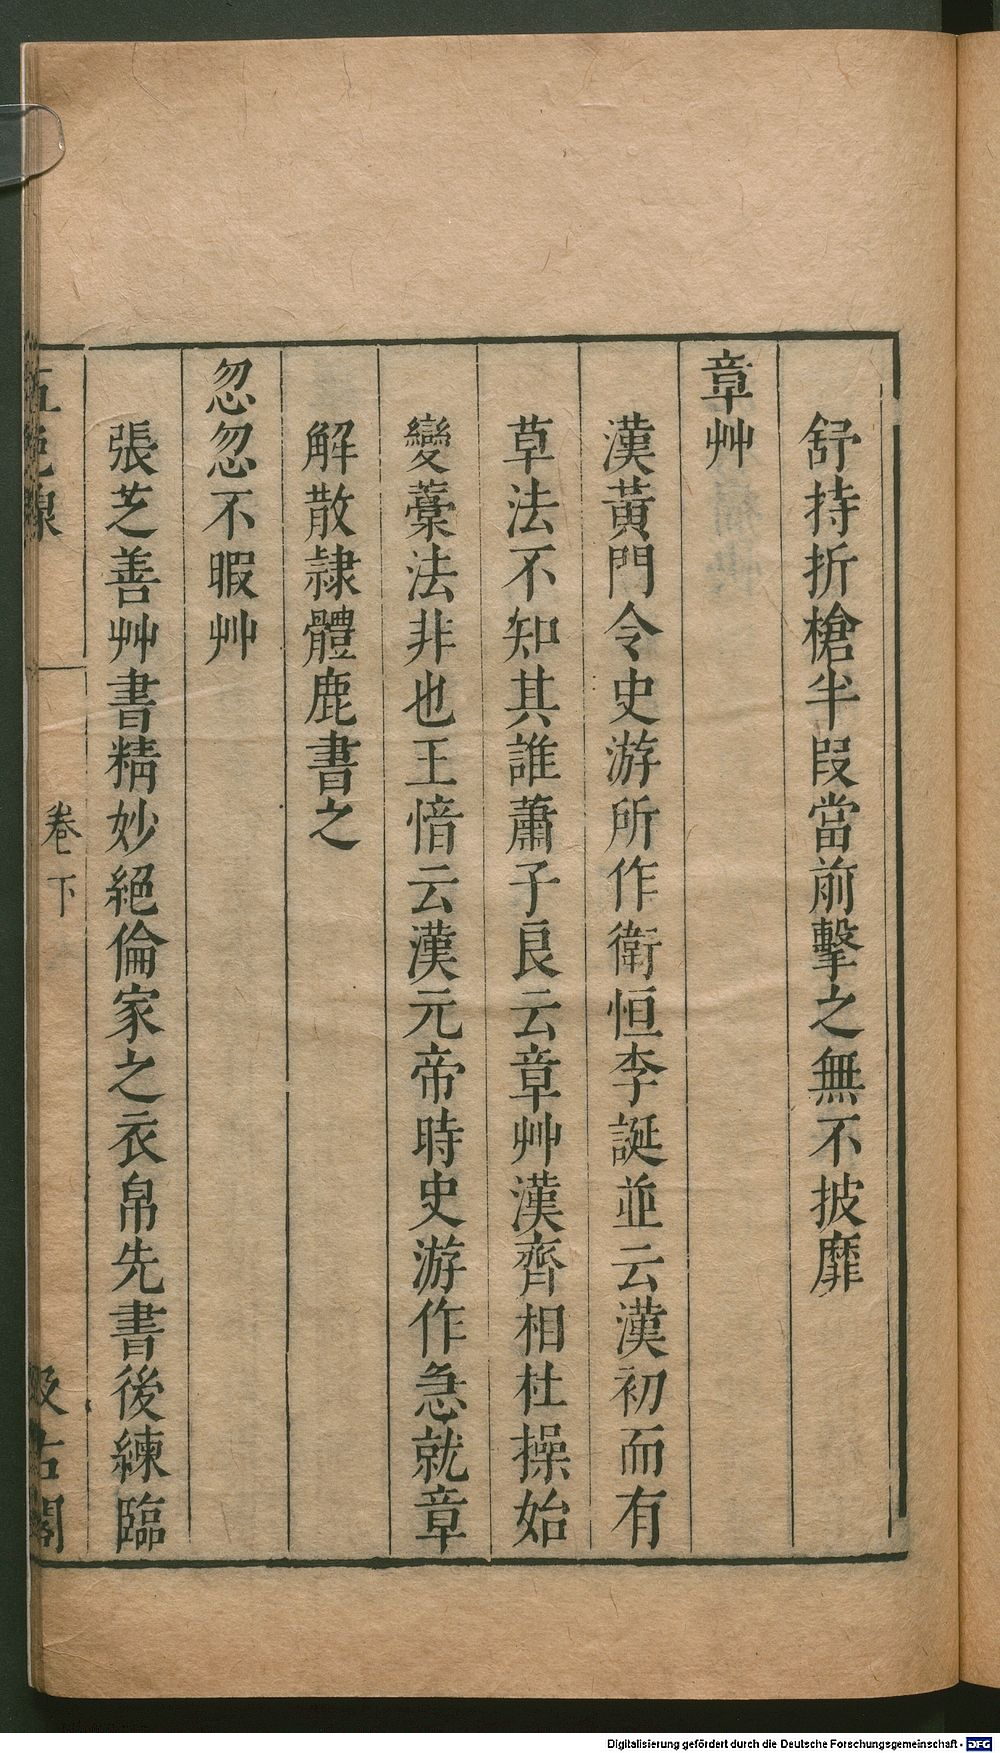 舒持折槍半段當前擊之無不披靡
章艸
漢黃門令史游所作衛恒李誕並云漢初而有
草法不知其誰蕭子良云章艸漢齊相杜操始
變藁法非也王愔云漢元帝時史游作急就章
解散隷體麄書之
忽忽不暇艸
張芝善艸書精妙絕倫家之衣帛先書後練臨
五色線
卷下
汲古閣
Digitalisierung gefördert durch die Deutsche Forschungsgemeinschaft - DFG